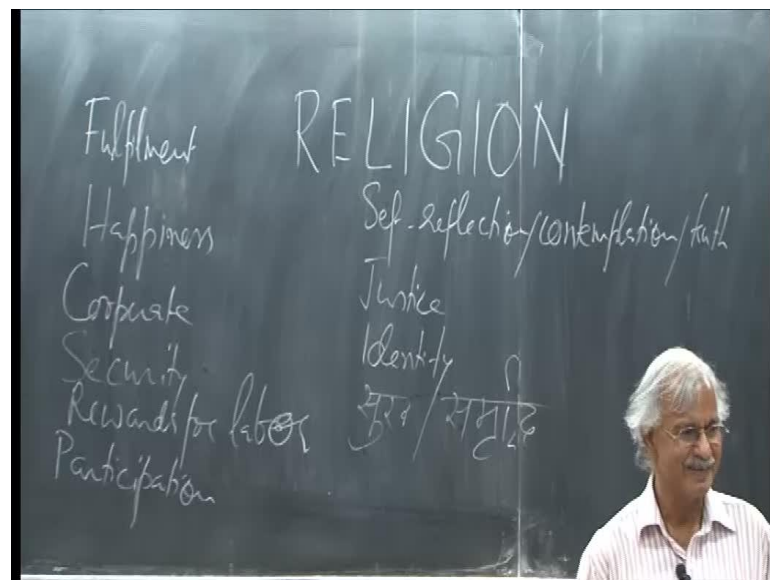 RELIGION
Fulfilment
Happiness
Cooperate
Security
Rewards for labor
Participation
Self-reflection/contemplation/truth
Justice
Identity
सुख / समृद्धि